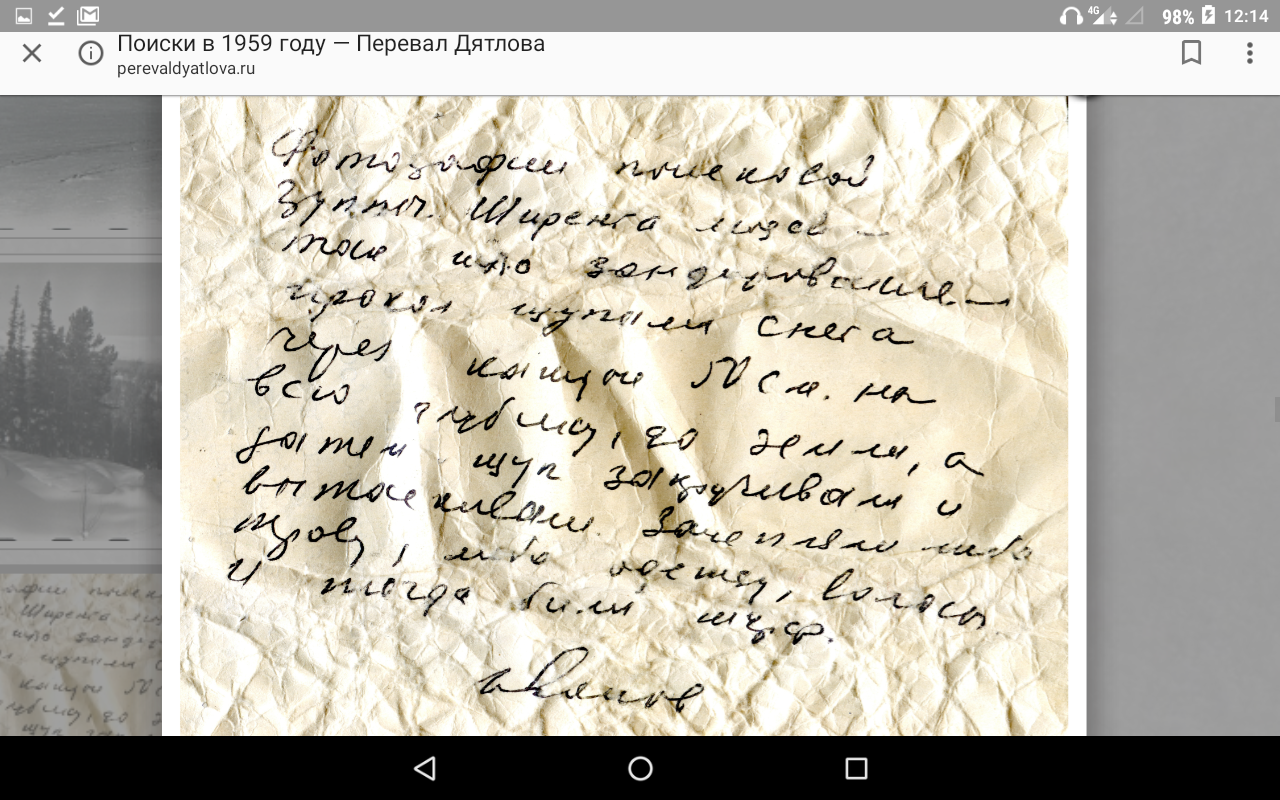 4G 98% 12:14
Поиски в 1959 году — Перевал Дятлова
perevaldyatlova.ru
Фотографии поисковой
группы. Шеренга людей —
это зондирование —
прокол щупами снега
через каждые 50 см. на
всю глубину, до земли, а
затем щуп закручивали и
вытаскивали. Зацепляли либо
траву, либо одежду, волосы
и тогда били шурф.